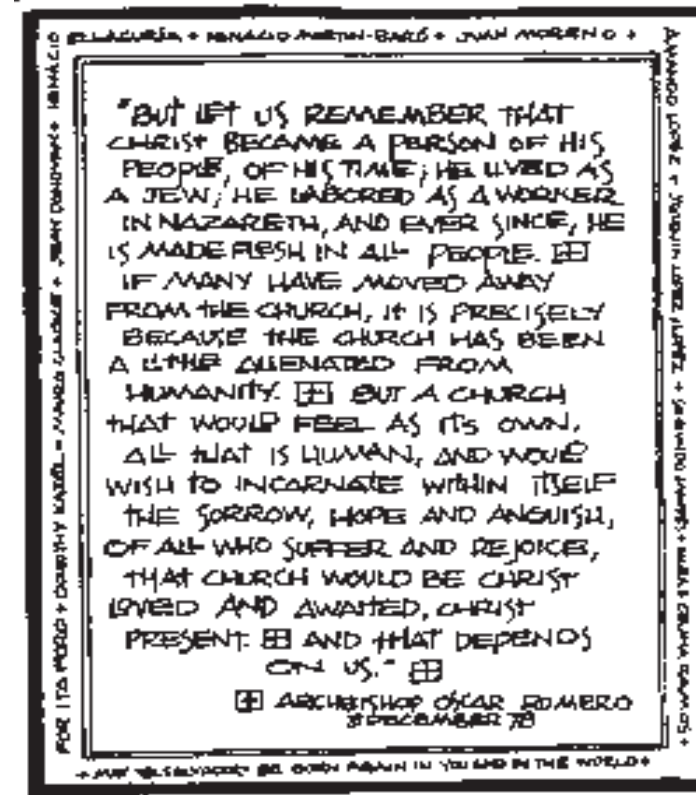 ELLACURÍA + IGNACIO MARTIN-BARÓ + JUAN MORENO +
"BUT LET US REMEMBER THAT
CHRIST BECAME A PERSON OF HIS
PEOPLE, OF HIS TIME; HE LIVED AS
A JEW; HE LABORED AS A WORKER
IN NAZARETH, AND EVER SINCE, HE
IS MADE FLESH IN ALL PEOPLE.
IF MANY HAVE MOVED AWAY
FROM THE CHURCH, IT IS PRECISELY
BECAUSE THE CHURCH HAS BEEN
A LITTLE ALIENATED FROM
HUMANITY. BUT A CHURCH
THAT WOULD FEEL AS ITS OWN,
ALL THAT IS HUMAN, AND WOULD
WISH TO INCARNATE WITHIN ITSELF
THE SORROW, HOPE AND ANGUISH,
OF ALL WHO SUFFER AND REJOICE,
THAT CHURCH WOULD BE CHRIST
LOVED AND AWAITED, CHRIST
PRESENT. AND THAT DEPENDS
ON US."
ARCHBISHOP OSCAR ROMERO
3 DECEMBER 78
AMANDO LOPEZ +
+ BE BORN AGAIN IN YOU AND IN THE WORLD +
FOR ITA FORD + DOROTHY KAZEL + MAURA CLARKE + JEAN DONOVAN + IGNACIO